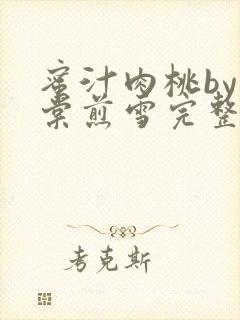 蜜汁肉桃by
棠煎雪完整
考克斯